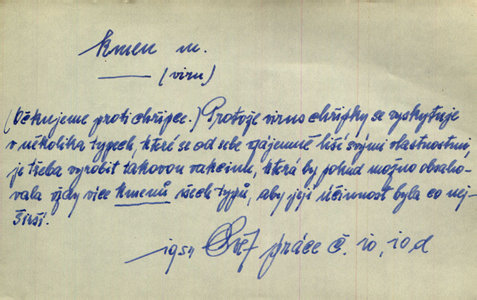 kmen m.
—— (viru)
(Očkujeme proti chřipce.) Protože virus chřipky se vyskytuje
v několika typech, které se od sebe vzájemně liší svými vlastnostmi,
je třeba vyrobit takovou vakcinu, která by pokud možno obsaho-
vala vždy více kmenů všech typů, aby její účinnost byla co nej-
širší.
práce č. 10, 10, d